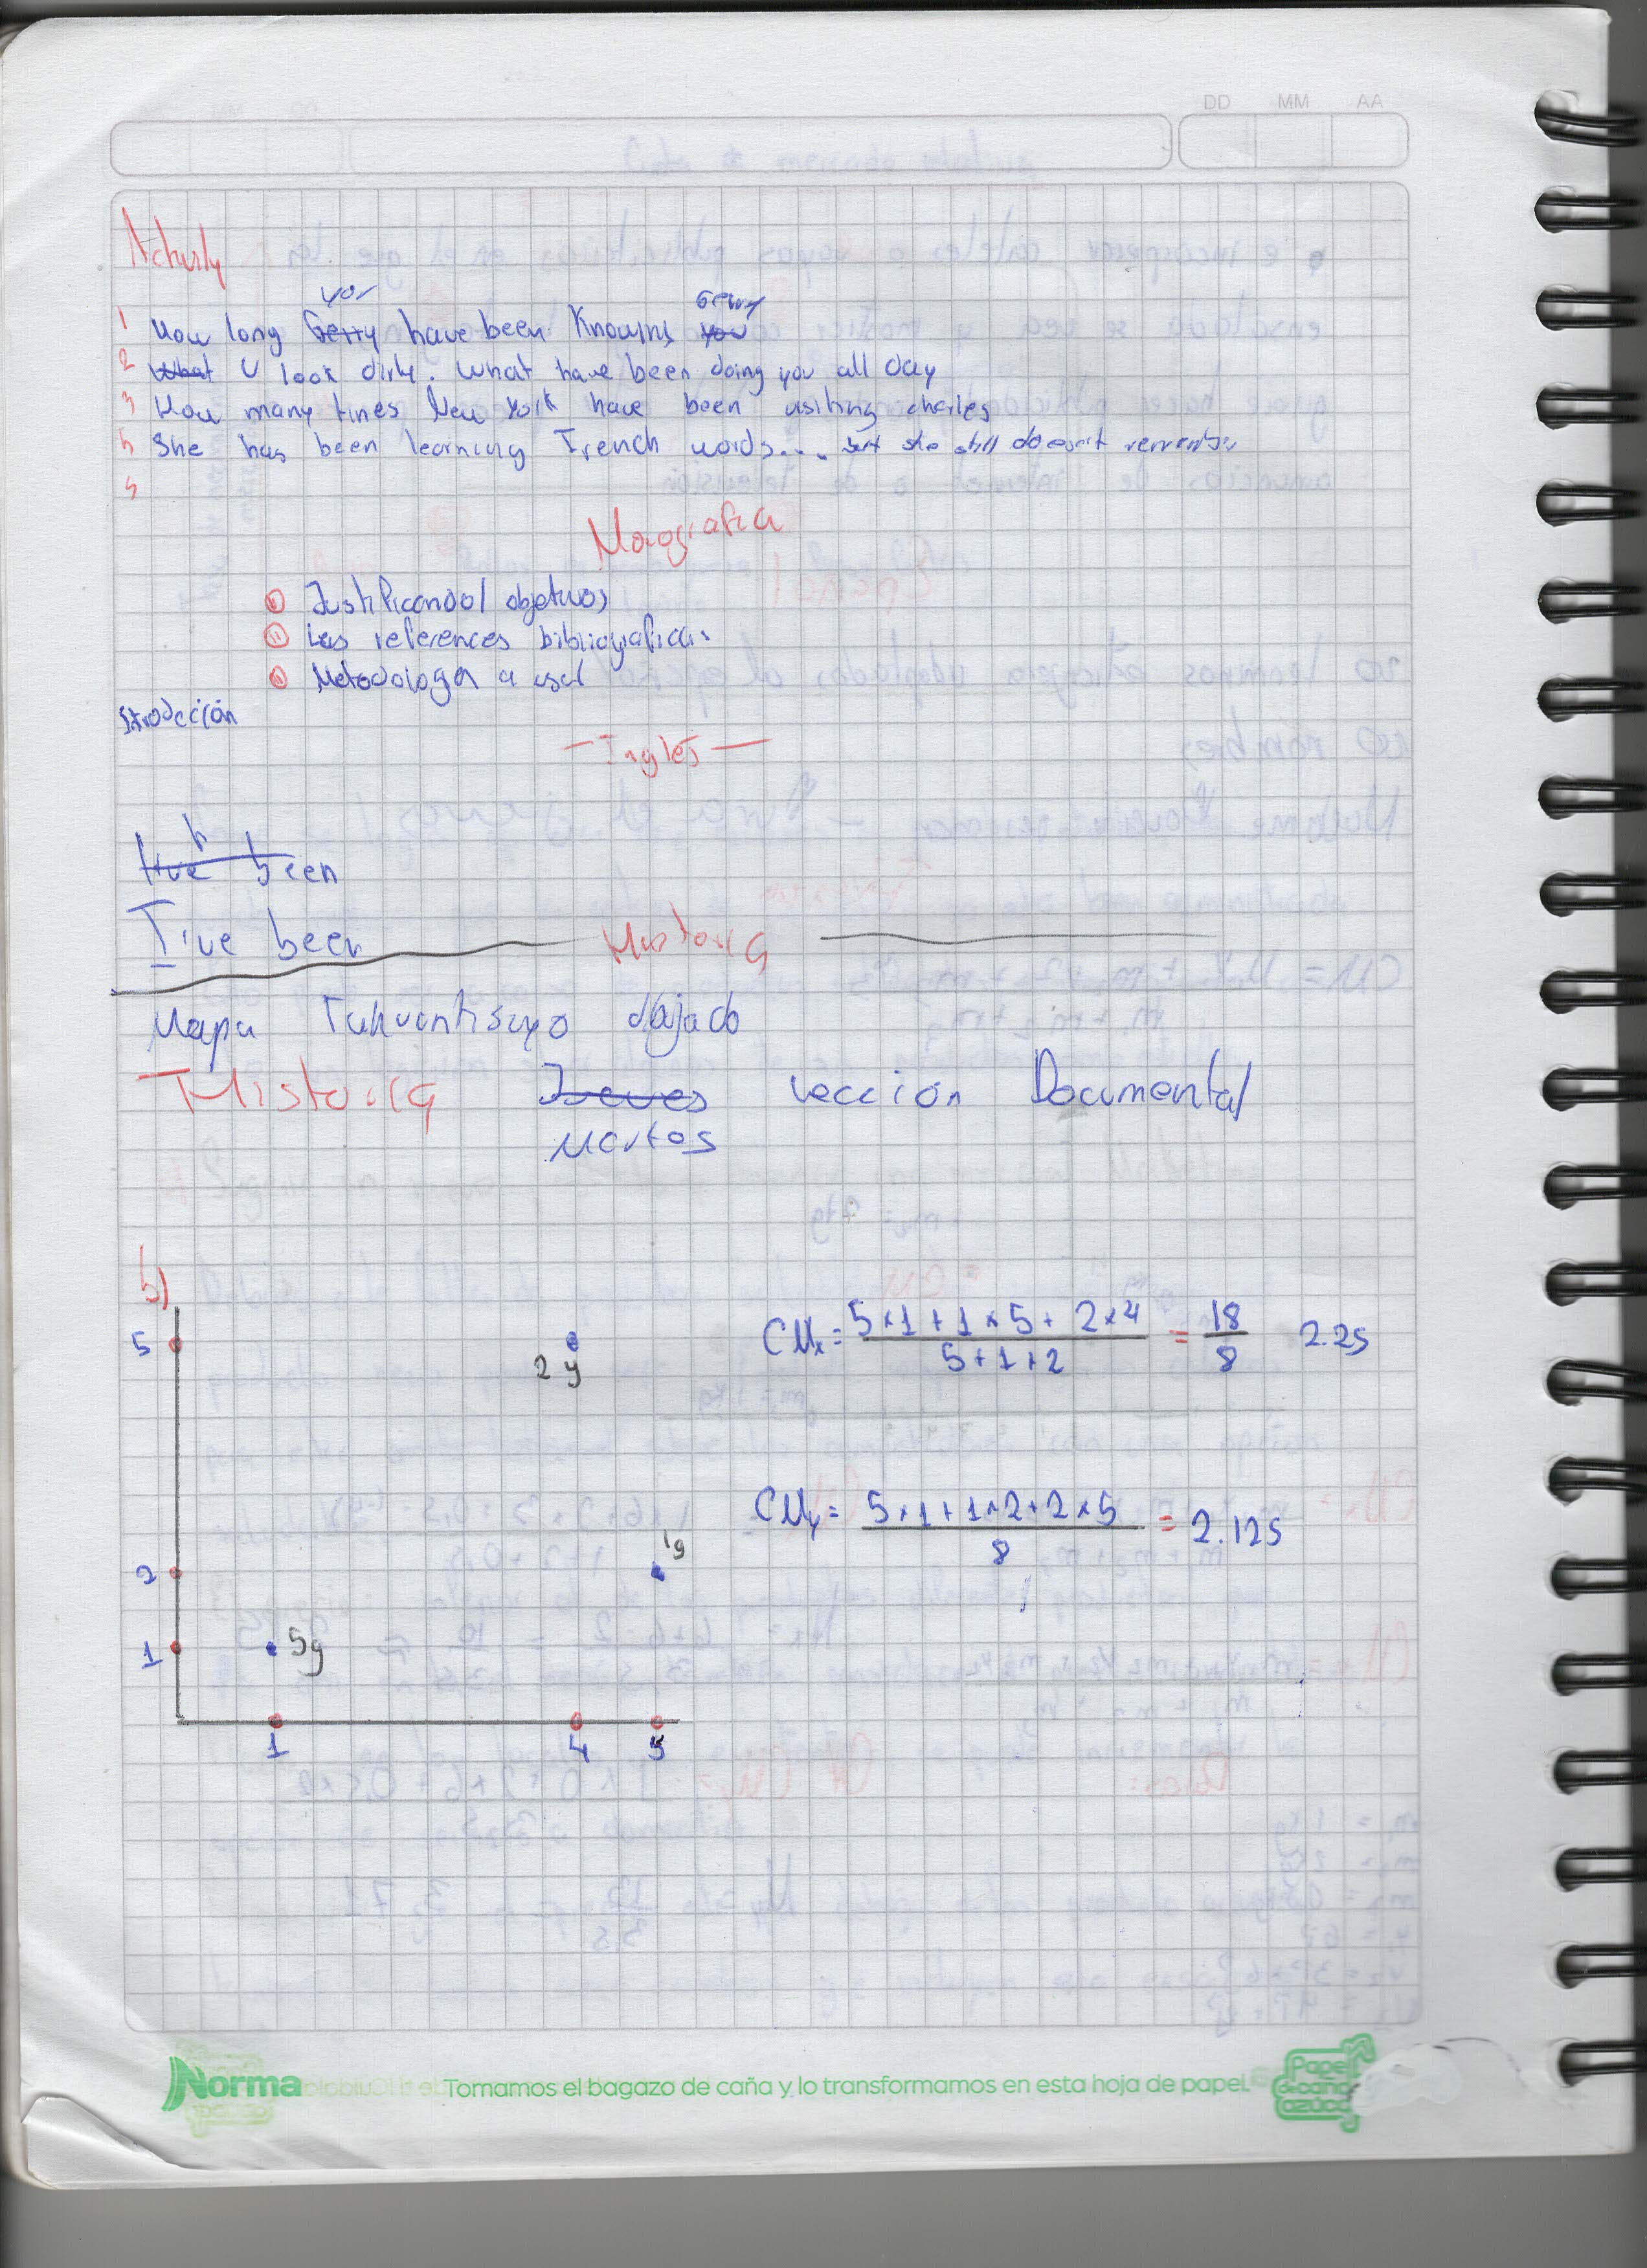 DD MM AA
Activity
you Gerry
1 How long Gerry have been Knowing you
2 What U look dirty. What have been doing you all day
3 How many times New York have been visiting charles
5 She has been learning French words... but she still doesn't remember
Monografia
Justificando/ objetivos
Las references bibliograficas
Metodologia a usar
Introdección
— Ingles —
h
I've been
I've been
Historia
Mapa Tahuantisuyo dibujado
Historia Jueves Lección Documental
Martes
b)
5
2 g
CMx= 5×1+1×5+2×4 = 18 2.25
5+1+2 8
CMy= 5×1+1×2+2×5 = 2.125
8
2
1g
1
5g
1 4 5
Norma
Tomamos el bagazo de caña y lo transformamos en esta hoja de papel.
Papel
de caña
azúcar